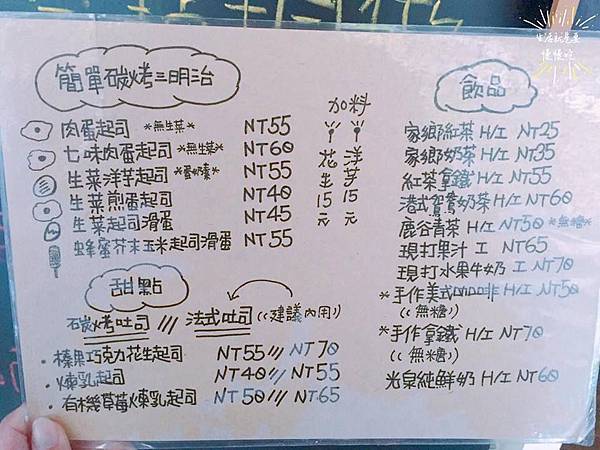 生活就是要
慢慢吃
簡單碳烤三明治
加料
花生15元
洋芋15元
肉蛋起司 *無生菜* NT55
七味肉蛋起司 *無生菜* NT60
生菜洋芋起司 *蛋奶素* NT55
生菜煎蛋起司 NT40
生菜起司滑蛋 NT45
蜂蜜芥末玉米起司滑蛋 NT55
甜點
碳烤吐司 /// 法式吐司 ((建議內用))
・榛果巧克力花生起司 NT55 /// NT70
・煉乳起司 NT40 // NT55
・有機草莓煉乳起司 NT50 /// NT65
飲品
家鄉紅茶 H/I NT25
家鄉奶茶 H/I NT35
紅茶拿鐵 H/I NT55
港式鴛鴦奶茶 H/I NT60
鹿谷青茶 H/I NT50 *無糖*
現打果汁 I NT65
現打水果牛奶 I NT70
*手作美式咖啡 H/I NT50
((無糖))
*手作拿鐵 H/I NT70
((無糖))
光泉純鮮奶 H/I NT60